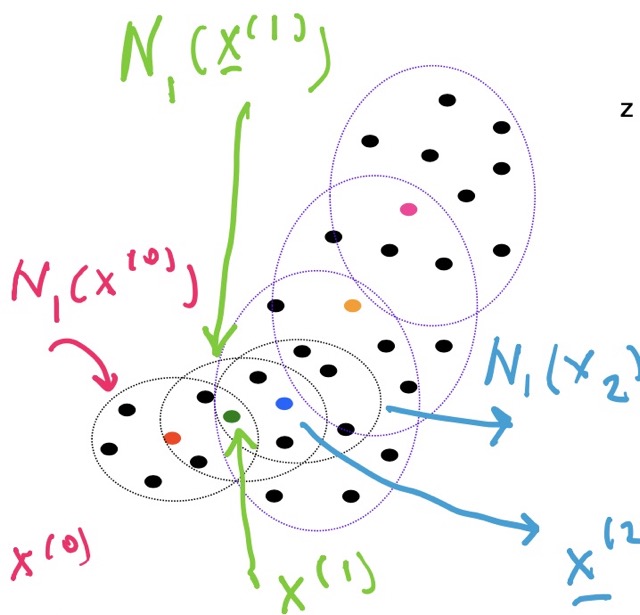 N₁(x̲⁽¹⁾)
z
N₁(x⁽⁰⁾)
N₁(x₂)
x⁽⁰⁾
x⁽¹⁾
x̲⁽²